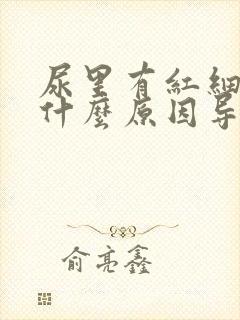 尿里有紅細
什麼原因导
俞亮鑫